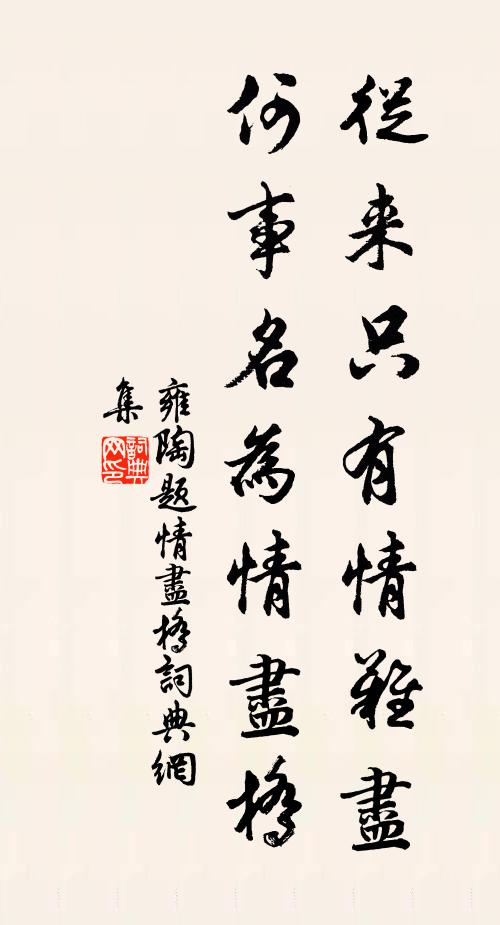 從来只有情難盡
何事名為情盡橋
雍陶題情盡橋詞典網
集
詞典網印